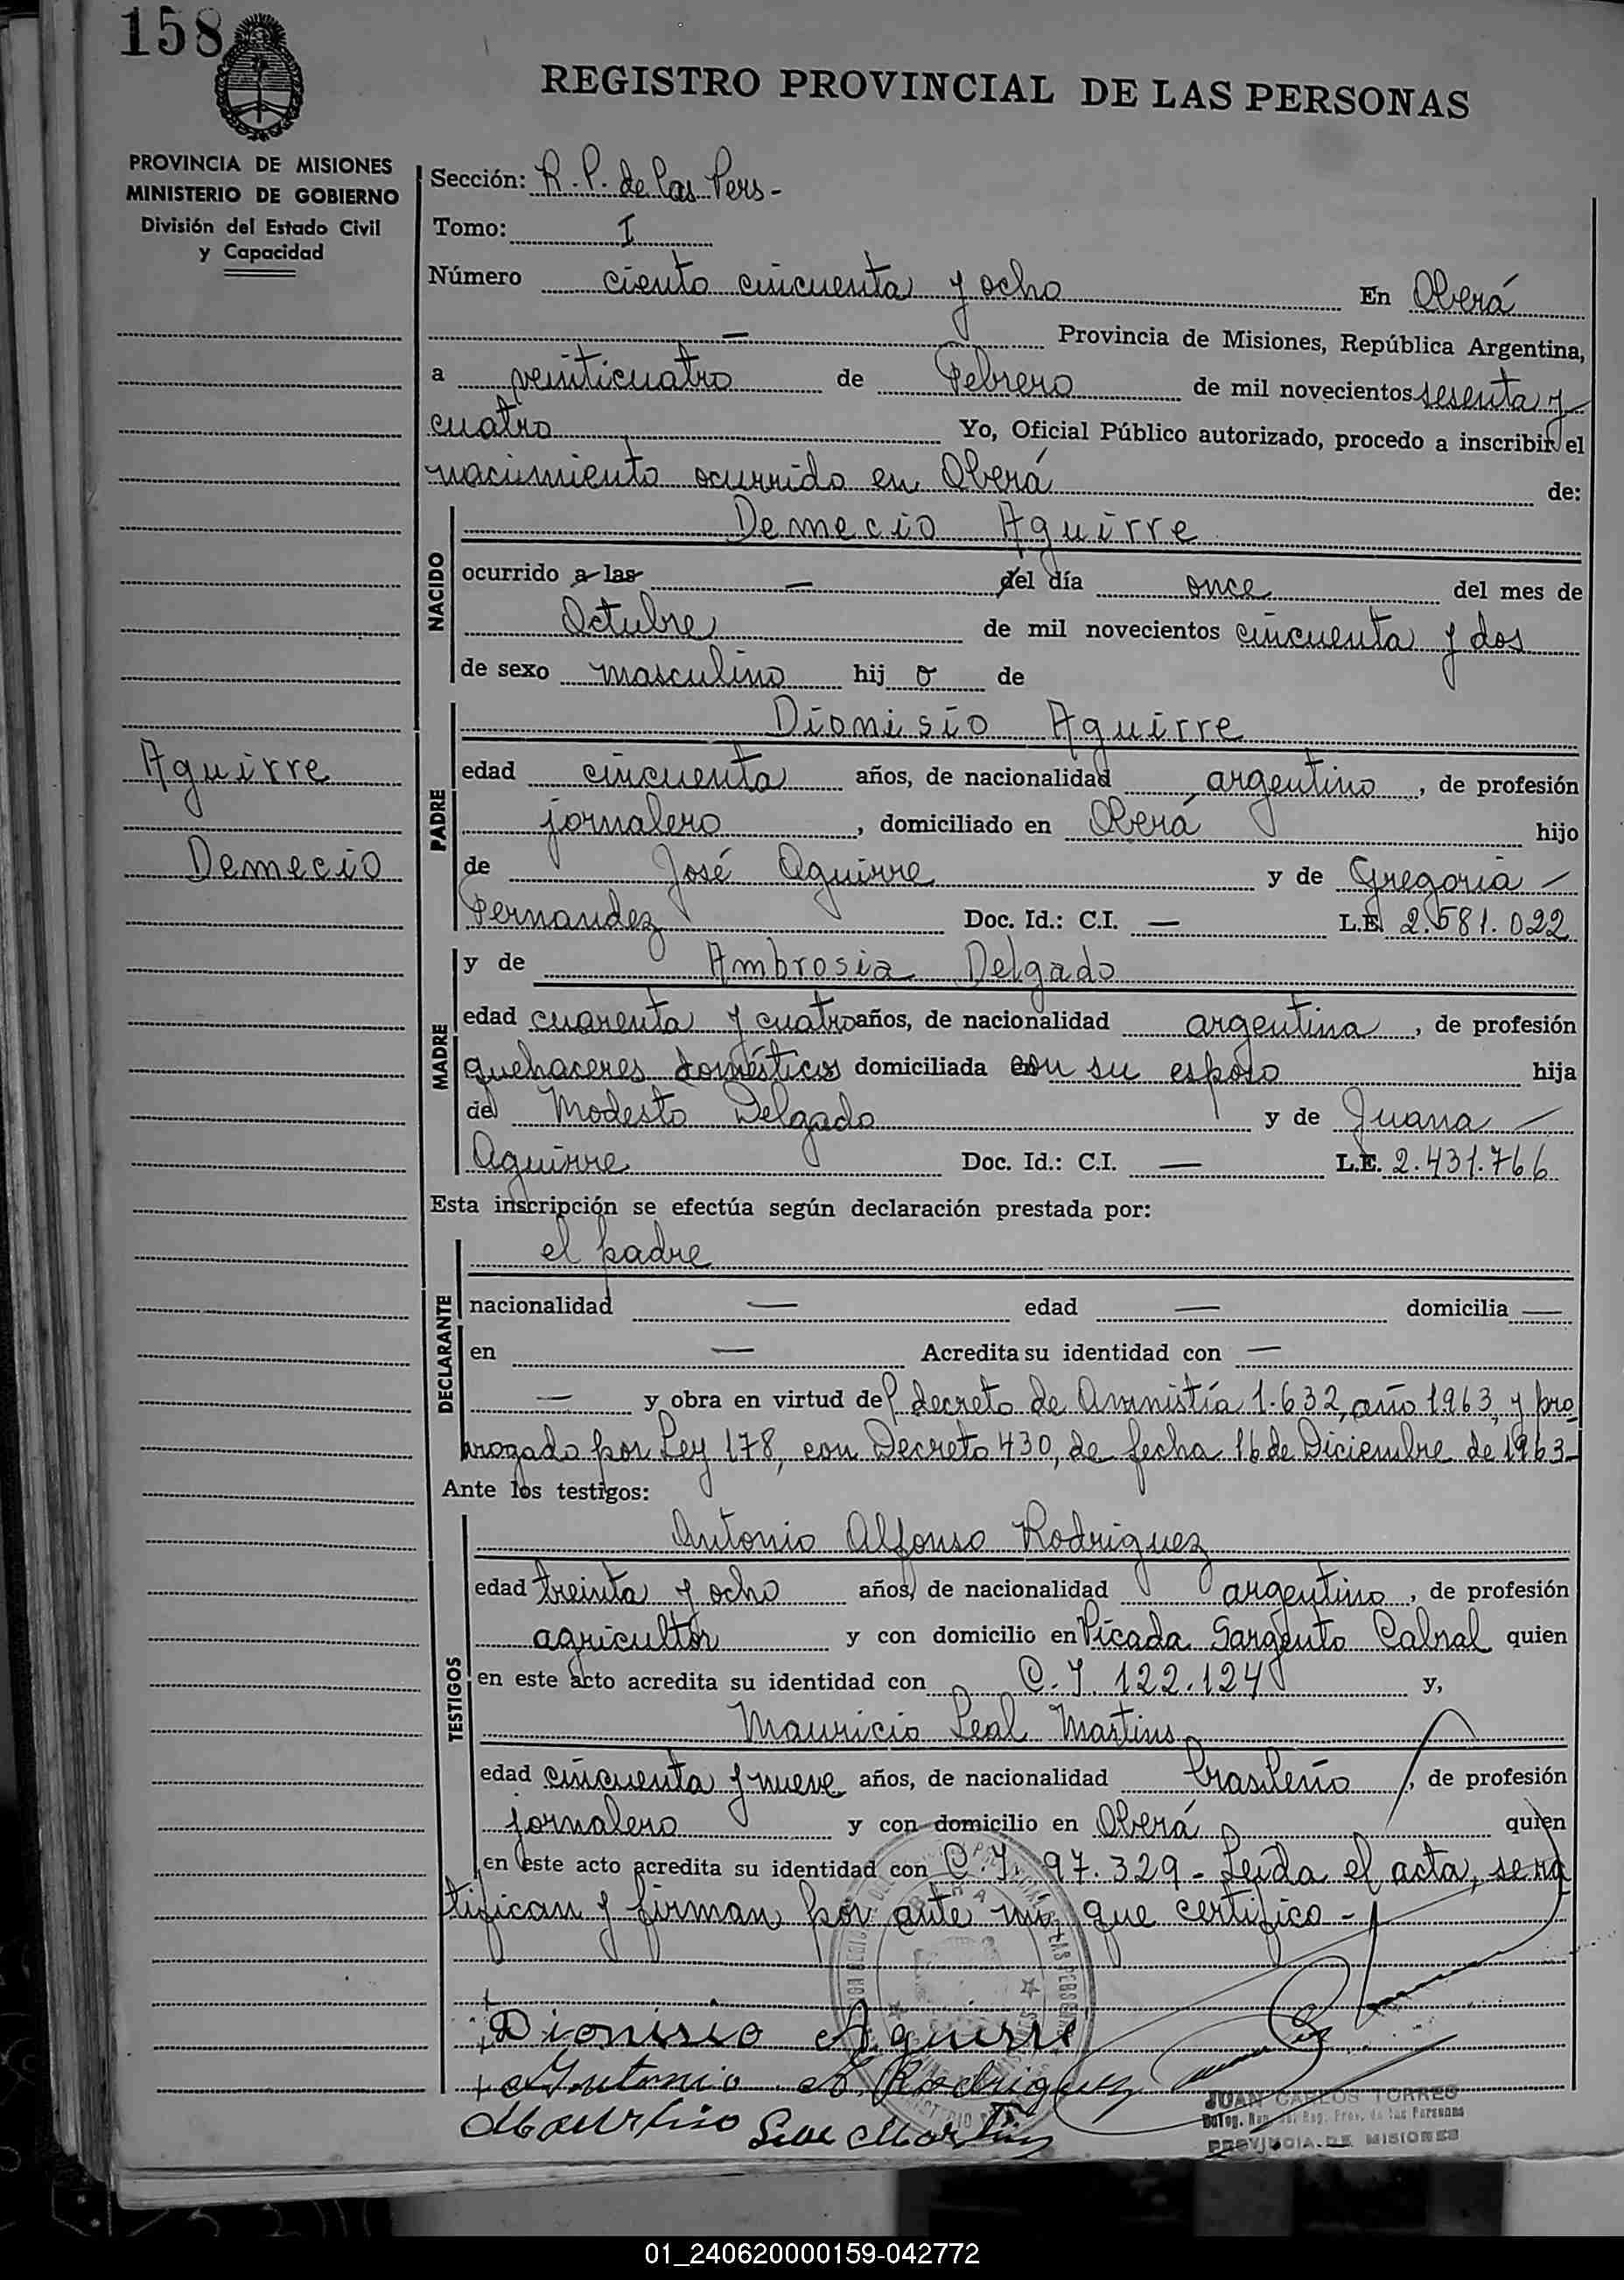 158
REGISTRO PROVINCIAL DE LAS PERSONAS
PROVINCIA DE MISIONES
MINISTERIO DE GOBIERNO
División del Estado Civil
y Capacidad
Sección: R. P. de las Pers -
Tomo: I
Número ciento cincuenta y ocho En Oberá
— Provincia de Misiones, República Argentina,
a veinticuatro de Febrero de mil novecientos sesenta y
cuatro Yo, Oficial Público autorizado, procedo a inscribir el
nacimiento ocurrido en Oberá de:
NACIDO
Demecio Aguirre
ocurrido a las — del día once del mes de
Octubre de mil novecientos cincuenta y dos
de sexo masculino hij o de
PADRE
Dionisio Aguirre
Aguirre
edad cincuenta años, de nacionalidad argentino, de profesión
jornalero, domiciliado en Oberá hijo
Demecio
de José Aguirre y de Gregoria —
Fernandez Doc. Id.: C.I. — L.E. 2.581.022
MADRE
y de Ambrosia Delgado
edad cuarenta y cuatro años, de nacionalidad argentina, de profesión
quehaceres domésticos domiciliada con su esposo hija
de Modesto Delgado y de Juana —
Aguirre Doc. Id.: C.I. — L.E. 2.431.766
Esta inscripción se efectúa según declaración prestada por:
DECLARANTE
el padre
nacionalidad — edad — domicilia —
en — Acredita su identidad con —
— y obra en virtud del decreto de Amnistía 1.632, año 1963, y pro
rrogado por Ley 178, con Decreto 430, de fecha 16 de Diciembre de 1963-
Ante los testigos:
TESTIGOS
Antonio Alfonso Rodriguez
edad treinta y ocho años, de nacionalidad argentino, de profesión
agricultor y con domicilio en Picada Sargento Cabral quien
en este acto acredita su identidad con C. I. 122.124 y,
Mauricio Leal Martins
edad cincuenta y nueve años, de nacionalidad brasileño, de profesión
jornalero y con domicilio en Oberá quien
en este acto acredita su identidad con C. I. 97.329 - Leída el acta, se ra
tifican y firman por ante mi, que certifico -
Dionisio Aguirre
Antonio A. Rodriguez
JUAN CARLOS TORRES
PROVINCIA DE MISIONES
01_240620000159-042772